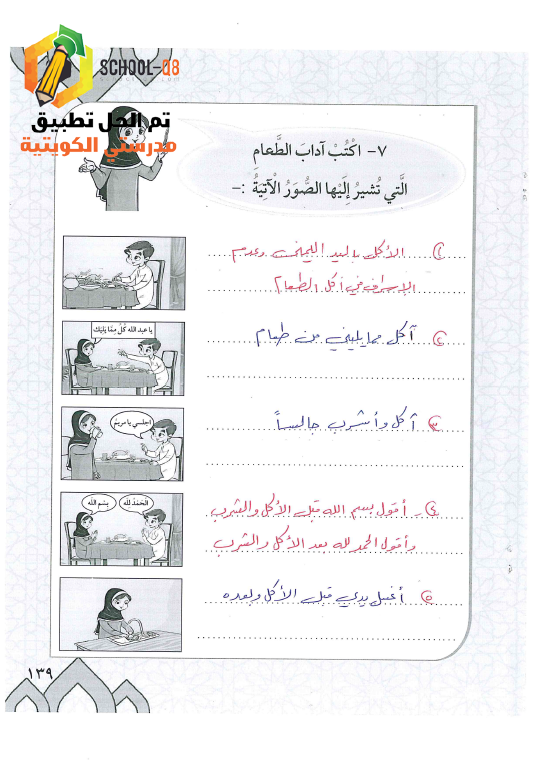 SCHOOL-Q8
تم الحل تطبيق
مدرستي الكويتية
٧- اكْتُبْ آدابَ الطَّعامِ
الَّتي تُشيرُ إِلَيْها الصُّوَرُ الْآتِيَةُ :-
١) الأكل باليد اليمنى وعدم
الإسراف في أكل الطعام
يا عبد الله كُلْ مِمّا يَليكَ
٢) آكل مما يليني من طعام
اجلسي يا مريم
٣) آكل وأشرب جالساً
بِسْم الله
الحَمْدُ لله
٤)- أقول بسم الله قبل الأكل والشرب
وأقول الحمد لله بعد الأكل والشرب
٥) أغسل يدي قبل الأكل وبعده
١٣٩